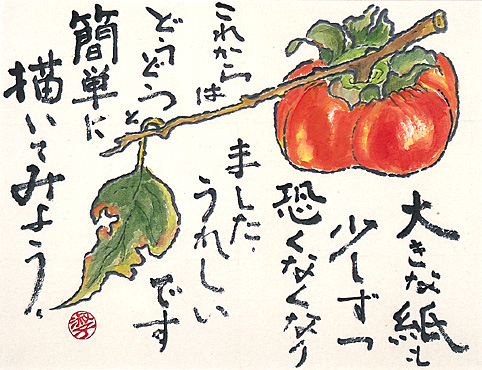 大きな紙も
少しずつ
恐くなくなり
ました.
うれしい
です
これからは
どうどうと
簡単に
描いてみよう。